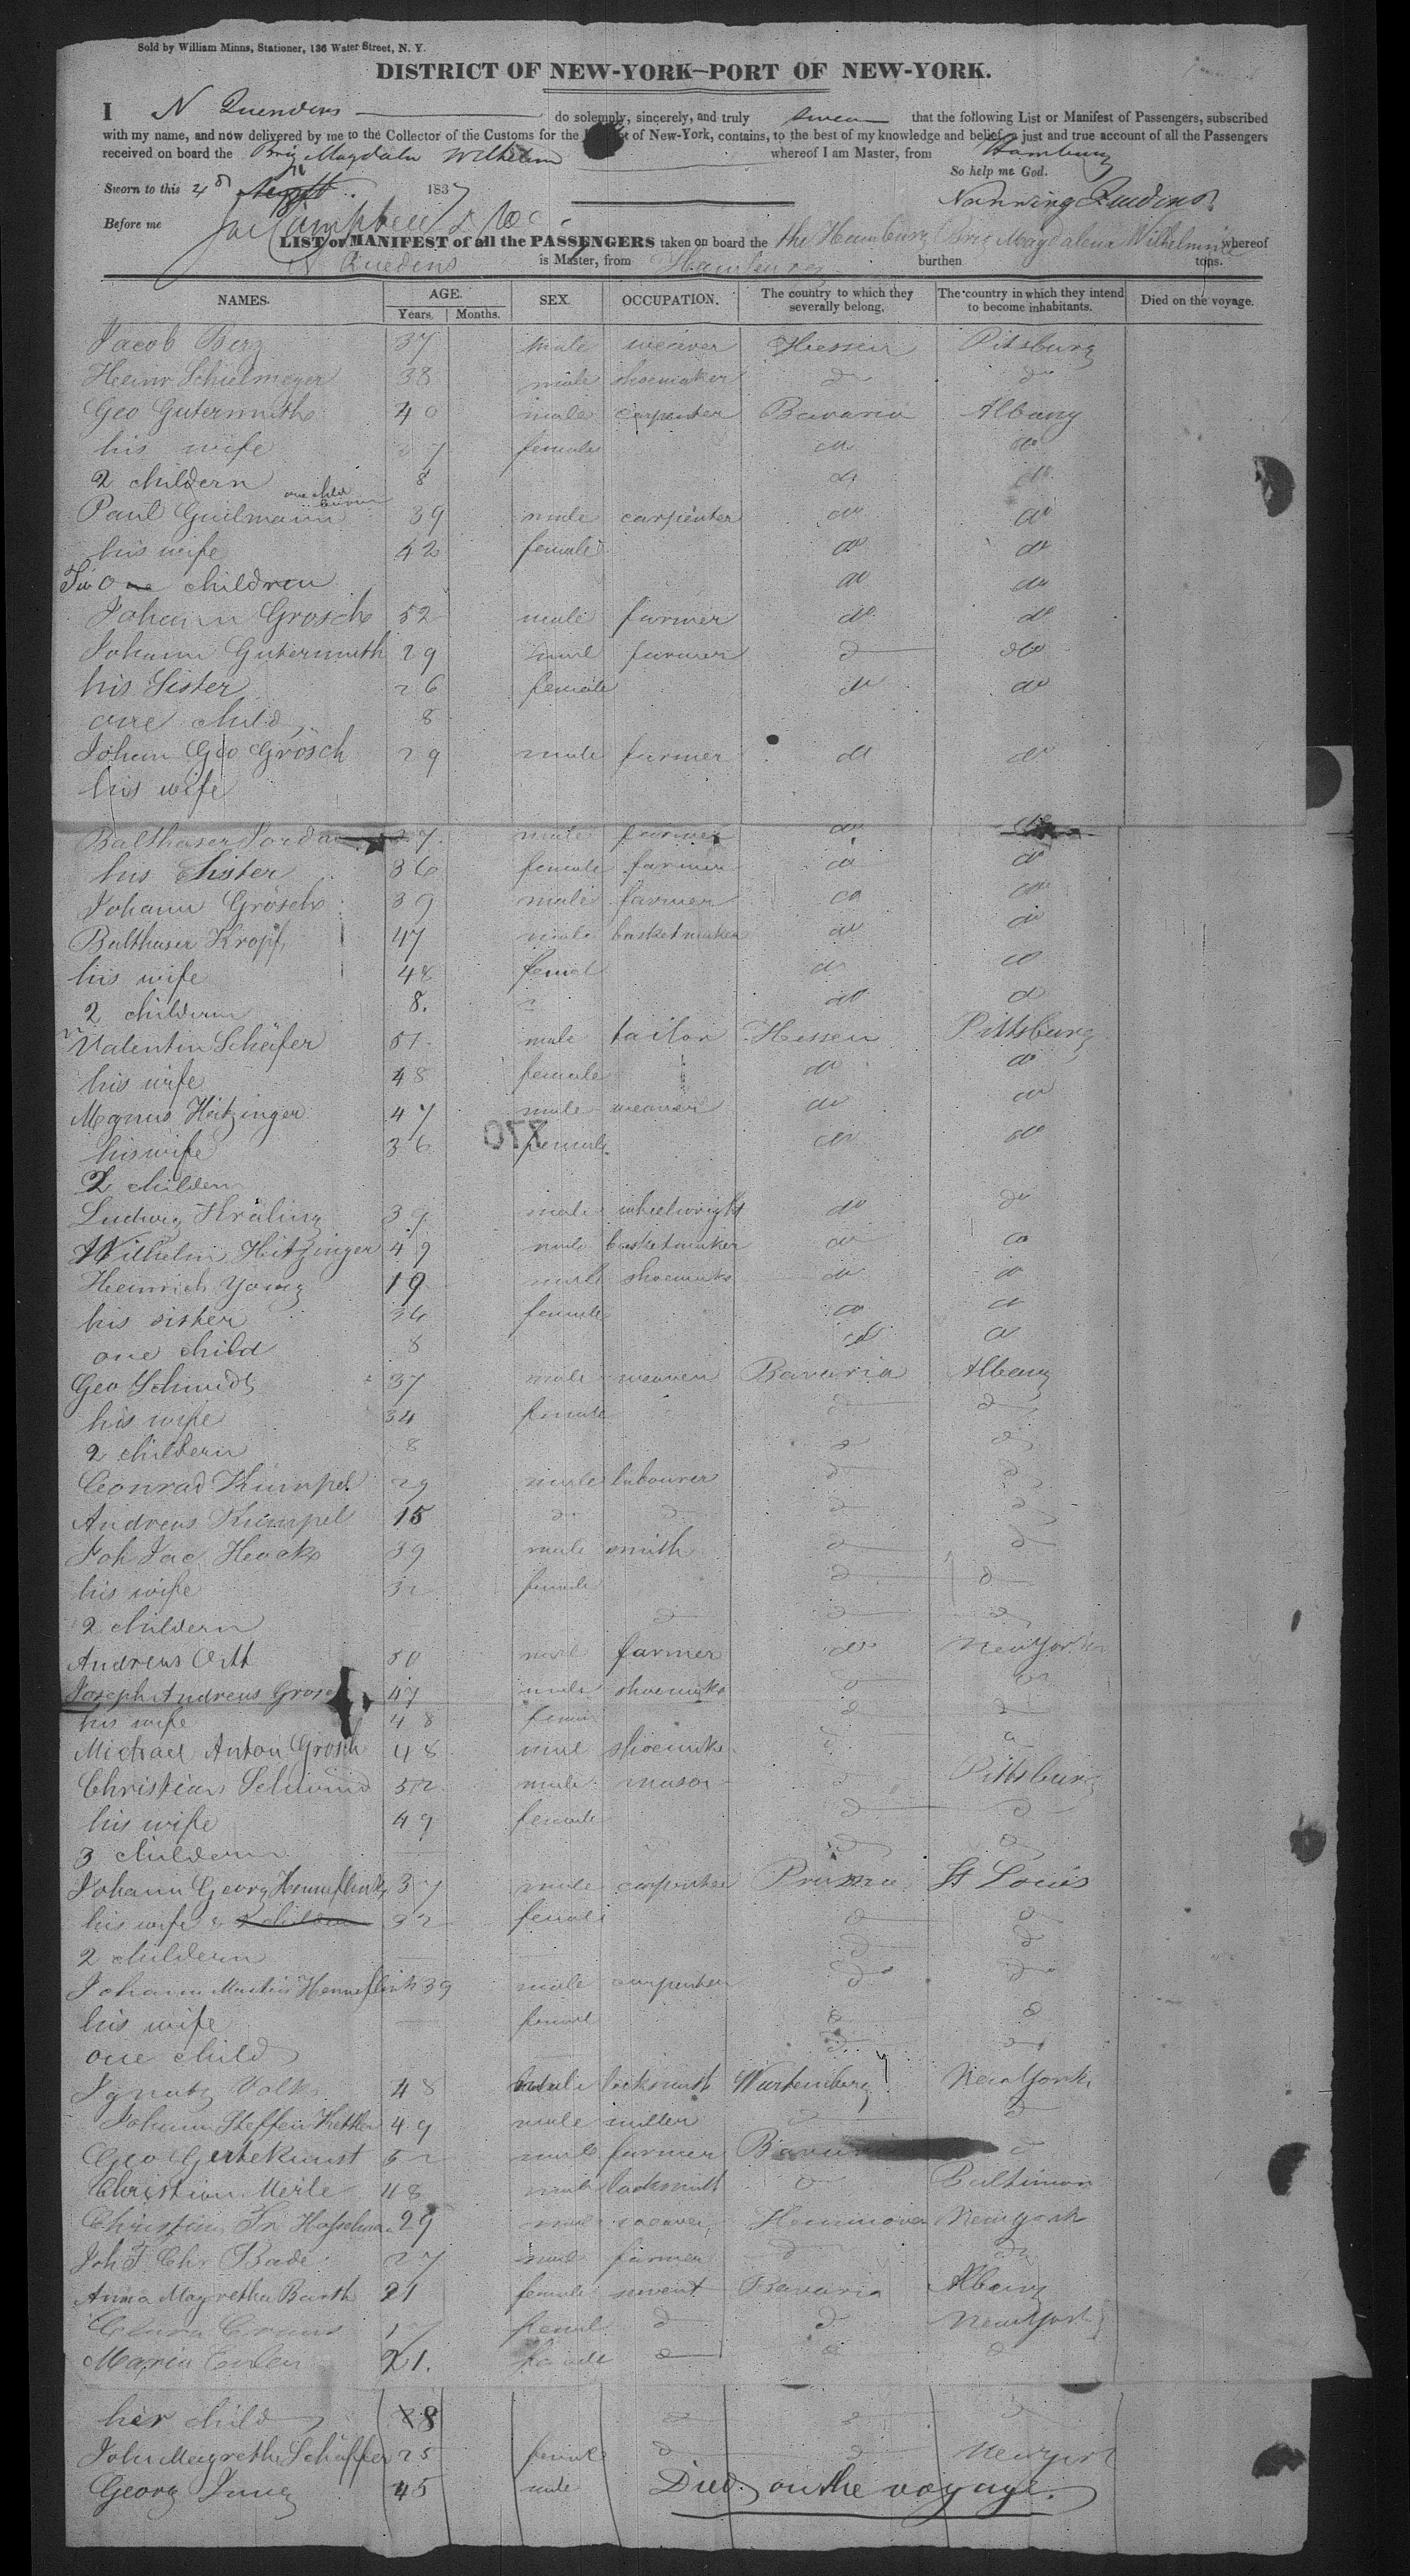 Sold by William Minns, Stationer, 136 Water Street, N. Y.
DISTRICT OF NEW-YORK—PORT OF NEW-YORK.
I N Quendens do solemnly, sincerely, and truly swear that the following List or Manifest of Passengers, subscribed
with my name, and now delivered by me to the Collector of the Customs for the of New-York, contains, to the best of my knowledge and belief, a just and true account of all the Passengers
received on board the Brig Magdala Wilhelm whereof I am Master, from Hamburg
So help me God.
Sworn to this 4 1837
Nanning Quedens
Before me
LIST or MANIFEST of all the PASSENGERS taken on board the the Hamburg Brig Magdalena Wilhelmine whereof
N Quedens is Master, from Hamburg burthen tons.
NAMES. AGE. SEX. OCCUPATION. The country to which they severally belong. The country in which they intend to become inhabitants. Died on the voyage.
Years. Months.
Jacob Berg 37 male weaver Hessen Pitsburg
Heinr Schielmeyer 38 male shoemaker do do
Geo Gutermuth 40 male carpenter Bavaria Albany
his wife 37 female do do
2 childern 8 do do
one child
Paul Guilmann 39 male carpenter do do
his wife 42 female do do
Two One children do do
Johann Grosch 52 male farmer do do
Johann Gutermuth 29 male farmer do do
his Sister 26 female do do
one child 8
Johan Geo Grosch 29 male farmer do do
his wife
Balthaser Jordan 27 male farmer do do
his Sister 36 female farmer do do
Johann Grosch 39 male farmer do do
Balthaser Kropf 47 male basketmaker do do
his wife 48 femal do do
2 childern 8. do do
Valentin Schäfer 51 male tailor Hessen Pittsburg
his wife 48 female do do
Magnus Hitzinger 47 male weaver do do
his wife 36 female do do
2 childern
Ludwig Kräling 39 male wheelwright do do
Wilhelm Hitzinger 49 male basketmaker do do
Heinrich Young 19 male shoemake do do
his sister 34 female do do
one child 8 do do
Geo Schmidt 37 male weaver Bavaria Albany
his wife 34 female do do
2 childern 8 do do
Conrad Kümpel 29 male labourer do do
Andreas Kümpel 15 do do do do
Joh Jac Heack 39 male smith do do
his wife 32 female do do
2 childern do do do
Andreas Ott 50 male farmer do New York
Joseph Andreas Grosch 47 male shoemake do do
his wife 48 femal do do
Michael Anton Grosch 48 male shoemake do do
Christian Schwind 52 male mason do Pittsburg
his wife 49 female do do
3 childern do do
Johann Georg Henneflink 37 male carpenter Prussia St Louis
his wife & 2 childern 32 female do do
2 childern do do
Johann Martin Henneflink 39 male carpenter do do
his wife female do do
one child do do
Ignatz Volk 48 male locksmith Wurtemberg New York
Johann Steffen Kettler 49 male miller do do
Geo Gertekunst 52 male farmer Bavaria do
Christian Merle 48 male locksmith do Baltimore
Christian Fr 29 male weaver Hannover New york
Joh F Chr Bade 27 male farmer do do
Anna Magretha Barth 21 female servent Bavaria Albany
Clara Craus 17 femal do do New York
Maria 21. female do do do
her child 8 do do do
John Magretha Schäffer 25 female do do New york
Georg Jung 45 male Died on the voyage.